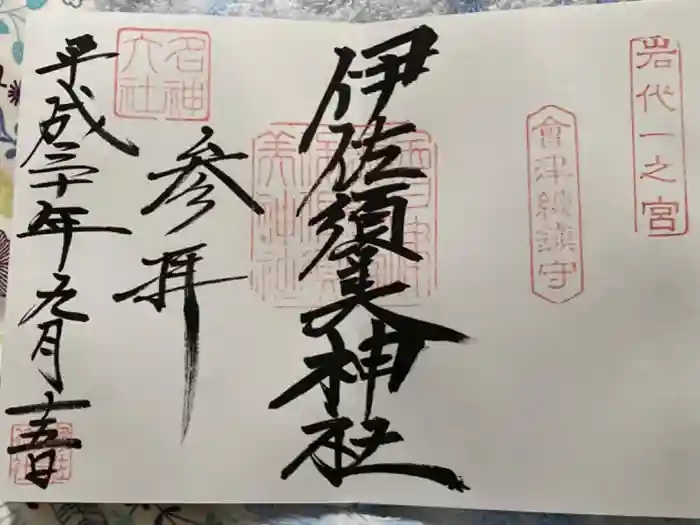 岩代一之宮
會津総鎮守
伊佐須美神社
参拝
名神大社
平成三十年九月十五日